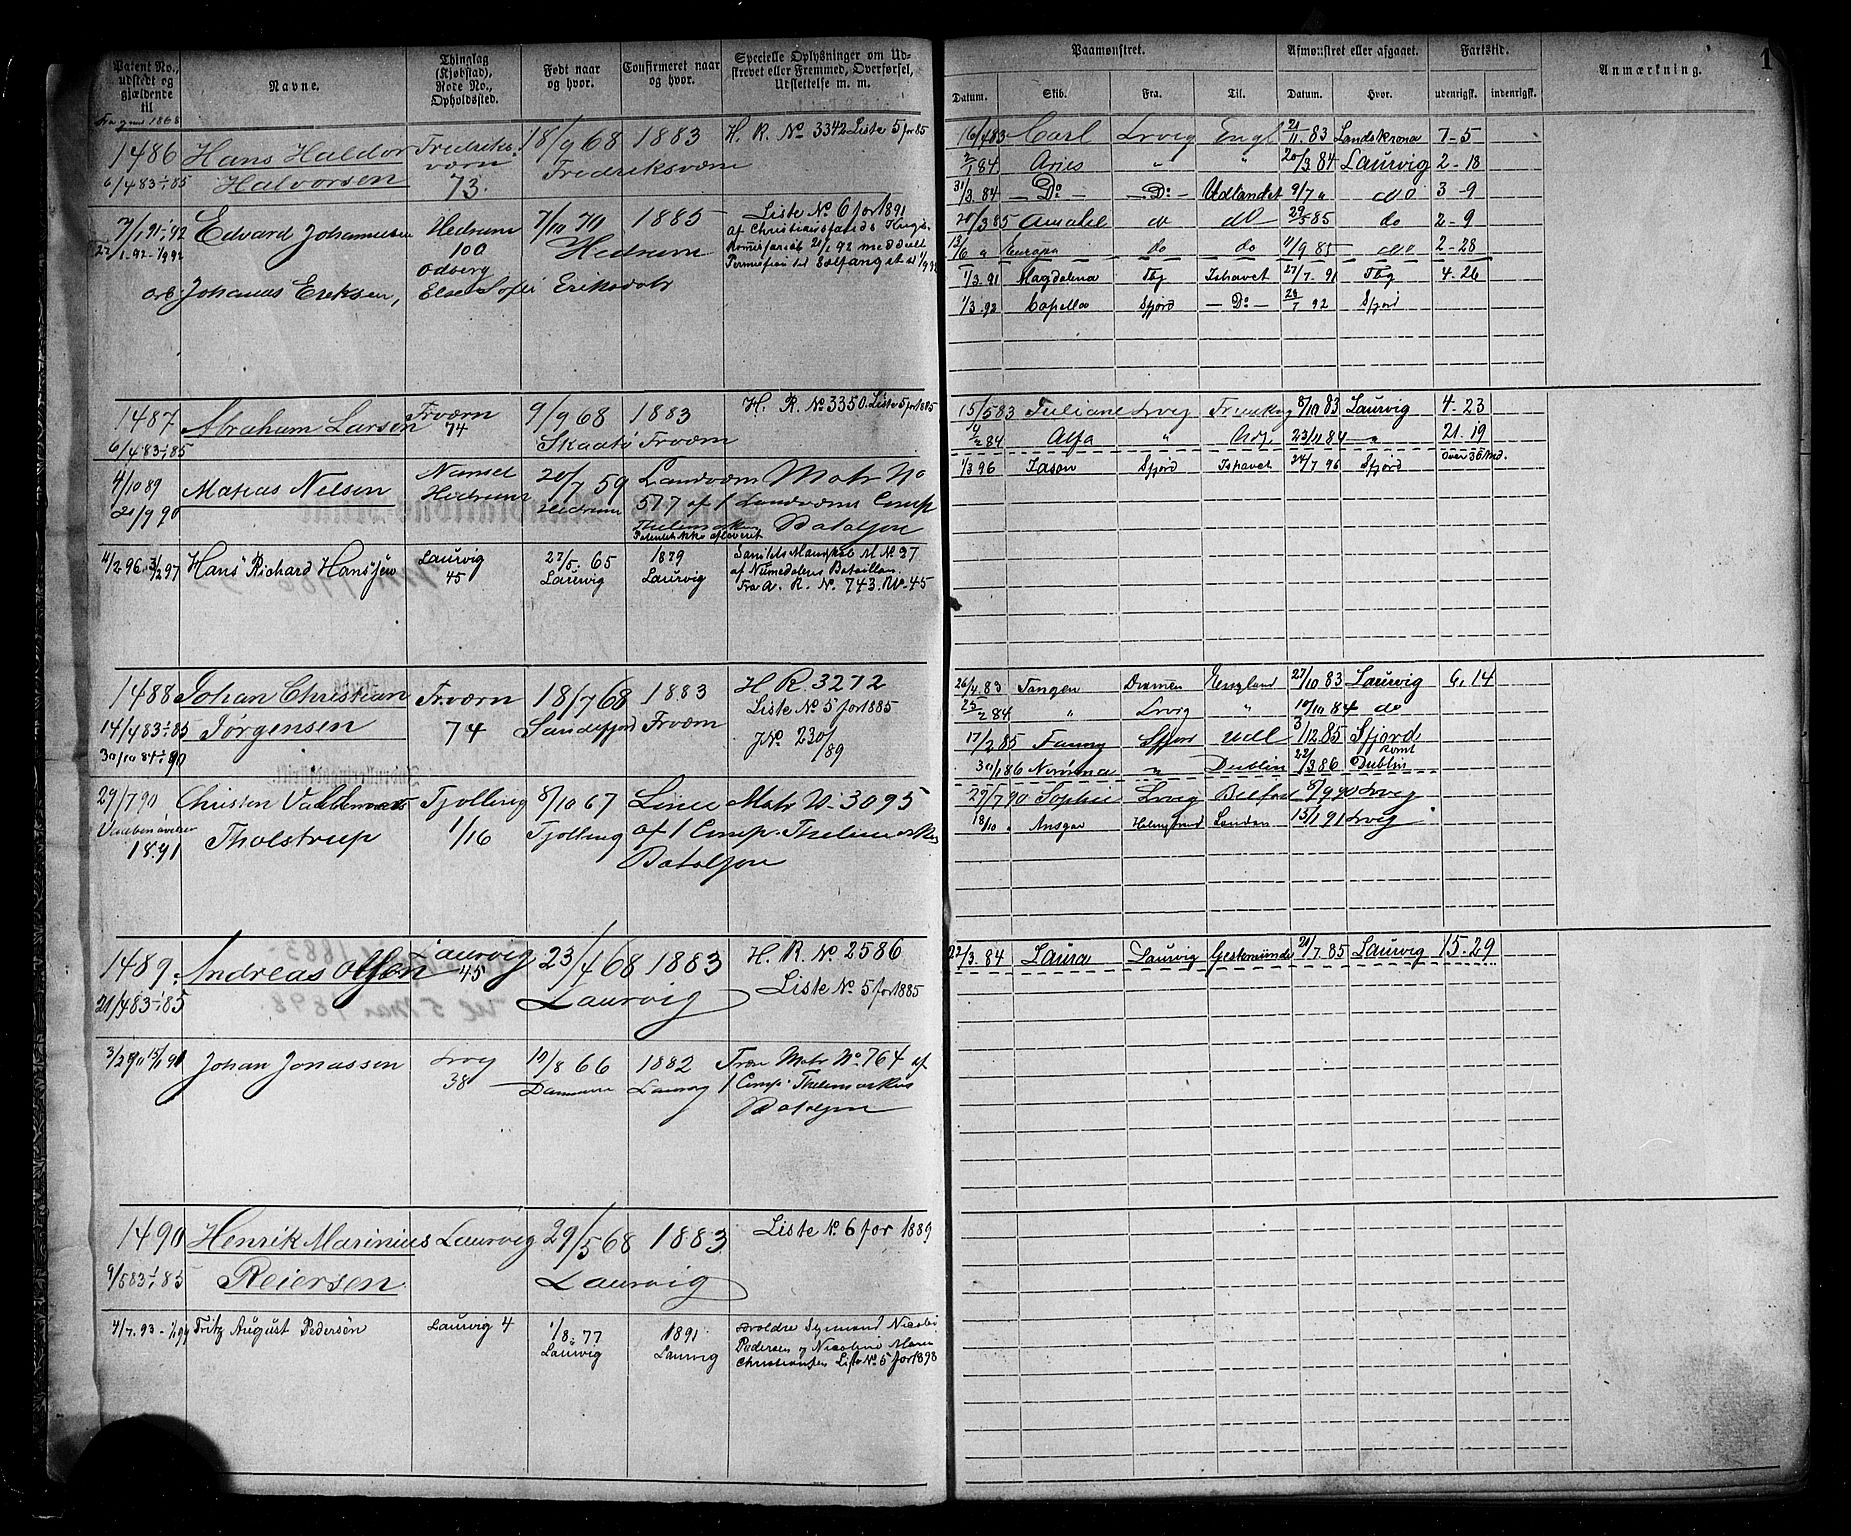 Patent No., udstedt og hvor. gjældende til
Navne.
Thinglag (Kjøbstad), Rode No., Opholdssted.
Født naar og hvor.
Confirmeret naar og hvor.
Specielle Oplysninger om Udstrevet eller Fremmed, Overførsel, Udslettelse m. m.
Paamønstret.
Afmønstret eller afgaaet.
Fartstid.
Anmærkning.
1
Datum. Skib. Fra. Til. Datum. Hvor. udenrigsk. indenrigsk.
1486 Hans Haldor Fredriks- 18/9 68 1883 H. R. No 3342 Liste 5 for 85
6/4 83 1/1 85 Halvorsen værn 73. Fredriksværn
16/4 83 Carl Lrvig Engl 21/11 83 Landskrona 7-5
2/1 84 Aries " " 20/3 84 Laurvig 2-18
31/3 84 Do Do Udlandet 9/7 " do 3-9
20/3 85 Amalie do do 29/5 85 do 2-9
13/6 " Europa do do 11/9 85 do 2-28
1/3 91 Magdalena Tbg Ishavet 27/7 91 Tbg 4-26
1/3 92 Capella Sfjord Do 28/7 92 Sfjord
Edvard Johannesen Hedrum 7/10 70 1885 Liste No 6 for 1891
100 Hedrum
Odberg
Johanas Eriksen, Else Sofie Eriksdatr
1487 Abraham Larsen Frværn 9/9 68 1883 H. R. No 3350. Liste 5 for 1885
6/4 83 1/1 85 74 Skaatø Frværn
15/5 83 Juliane Lrvg 8/10 83 Laurvig 4-23
4/2 84 Alfa " 23/11 84 " 21.19
1/3 96 Jason Sfjord Ishavet 24/7 96 Sfjord over 36 Md.
4/10 89 Matias Nilsen Nansel 20/7 59 Landværn Matr No
21/9 90 Hedrum Hedrum 577 af 1 Landværns Comp
Thelemarkens Bataljon
Patent ikke afleveret
4/2 96 3/2 97 Hans Richard Hansen Laurvig 27/5. 65 1879 Sanitets Mandskab M No 27
45 Laurvig Laurvig af Numedalens Bataillon.
Fra A. R. No. 743. R No. 45
1488 Johan Christian Frværn 18/7 68 1883 H. R. 3272
14/4 83 1/1 85 Jørgensen 74 Sandefjord Frværn Liste No 5 for 1885
30/10 84 1/1 90 JNo 230/89
26/4 83 Tangen Dramen England 27/10 83 Laurvig 6.14
23/2 84 " Lrvig " 10/10 84 do
17/2 85 Fanny Sfjord Udl 3/12 85 Sfjord
30/1 86 Norønna " Dublin 22/3 86 Dublin
29/7 90 Sophie Lrvig Belfast 8/9 90 Lrvg
18/10 " Ansgar Holmstrand London 15/1 91 Lrvig
29/7 90 Christen Valdemar Tjølling 8/10 67 Linie Matr No 3095
Vaabenøvelser Tholstrup 1/16 Tjølling af 1 Comp. Thelemarkens
1891 Bataljon
1489. Andreas Olsen Laurvig 23/4 68 1883 H. R. No 2586
21/4 83 1/1 85 45 Laurvig Liste No 5 for 1885
22/3 84 Laura Laurvig Gestemünde 21/7 85 Laurvig 15-29
Johan Jonassen Lrvg 19/8 66 1882 Fra Matr No 764 af
38 Laurvig 1 Comp. Thelemarkens
Bataljon
1490 Henrik Marinius Laurvig 29/5 68 1883 Liste No 6 for 1889
9/5 83 1/1 85 Reiersen Laurvig
4/7. 93 Fritz August Pedersen Laurvig 4 1/8. 77 1891 Forældre Symund Nicolai
Laurvig Laurvig Pedersen og Nicoline Marie
Christiansen Liste No 5 for 1898